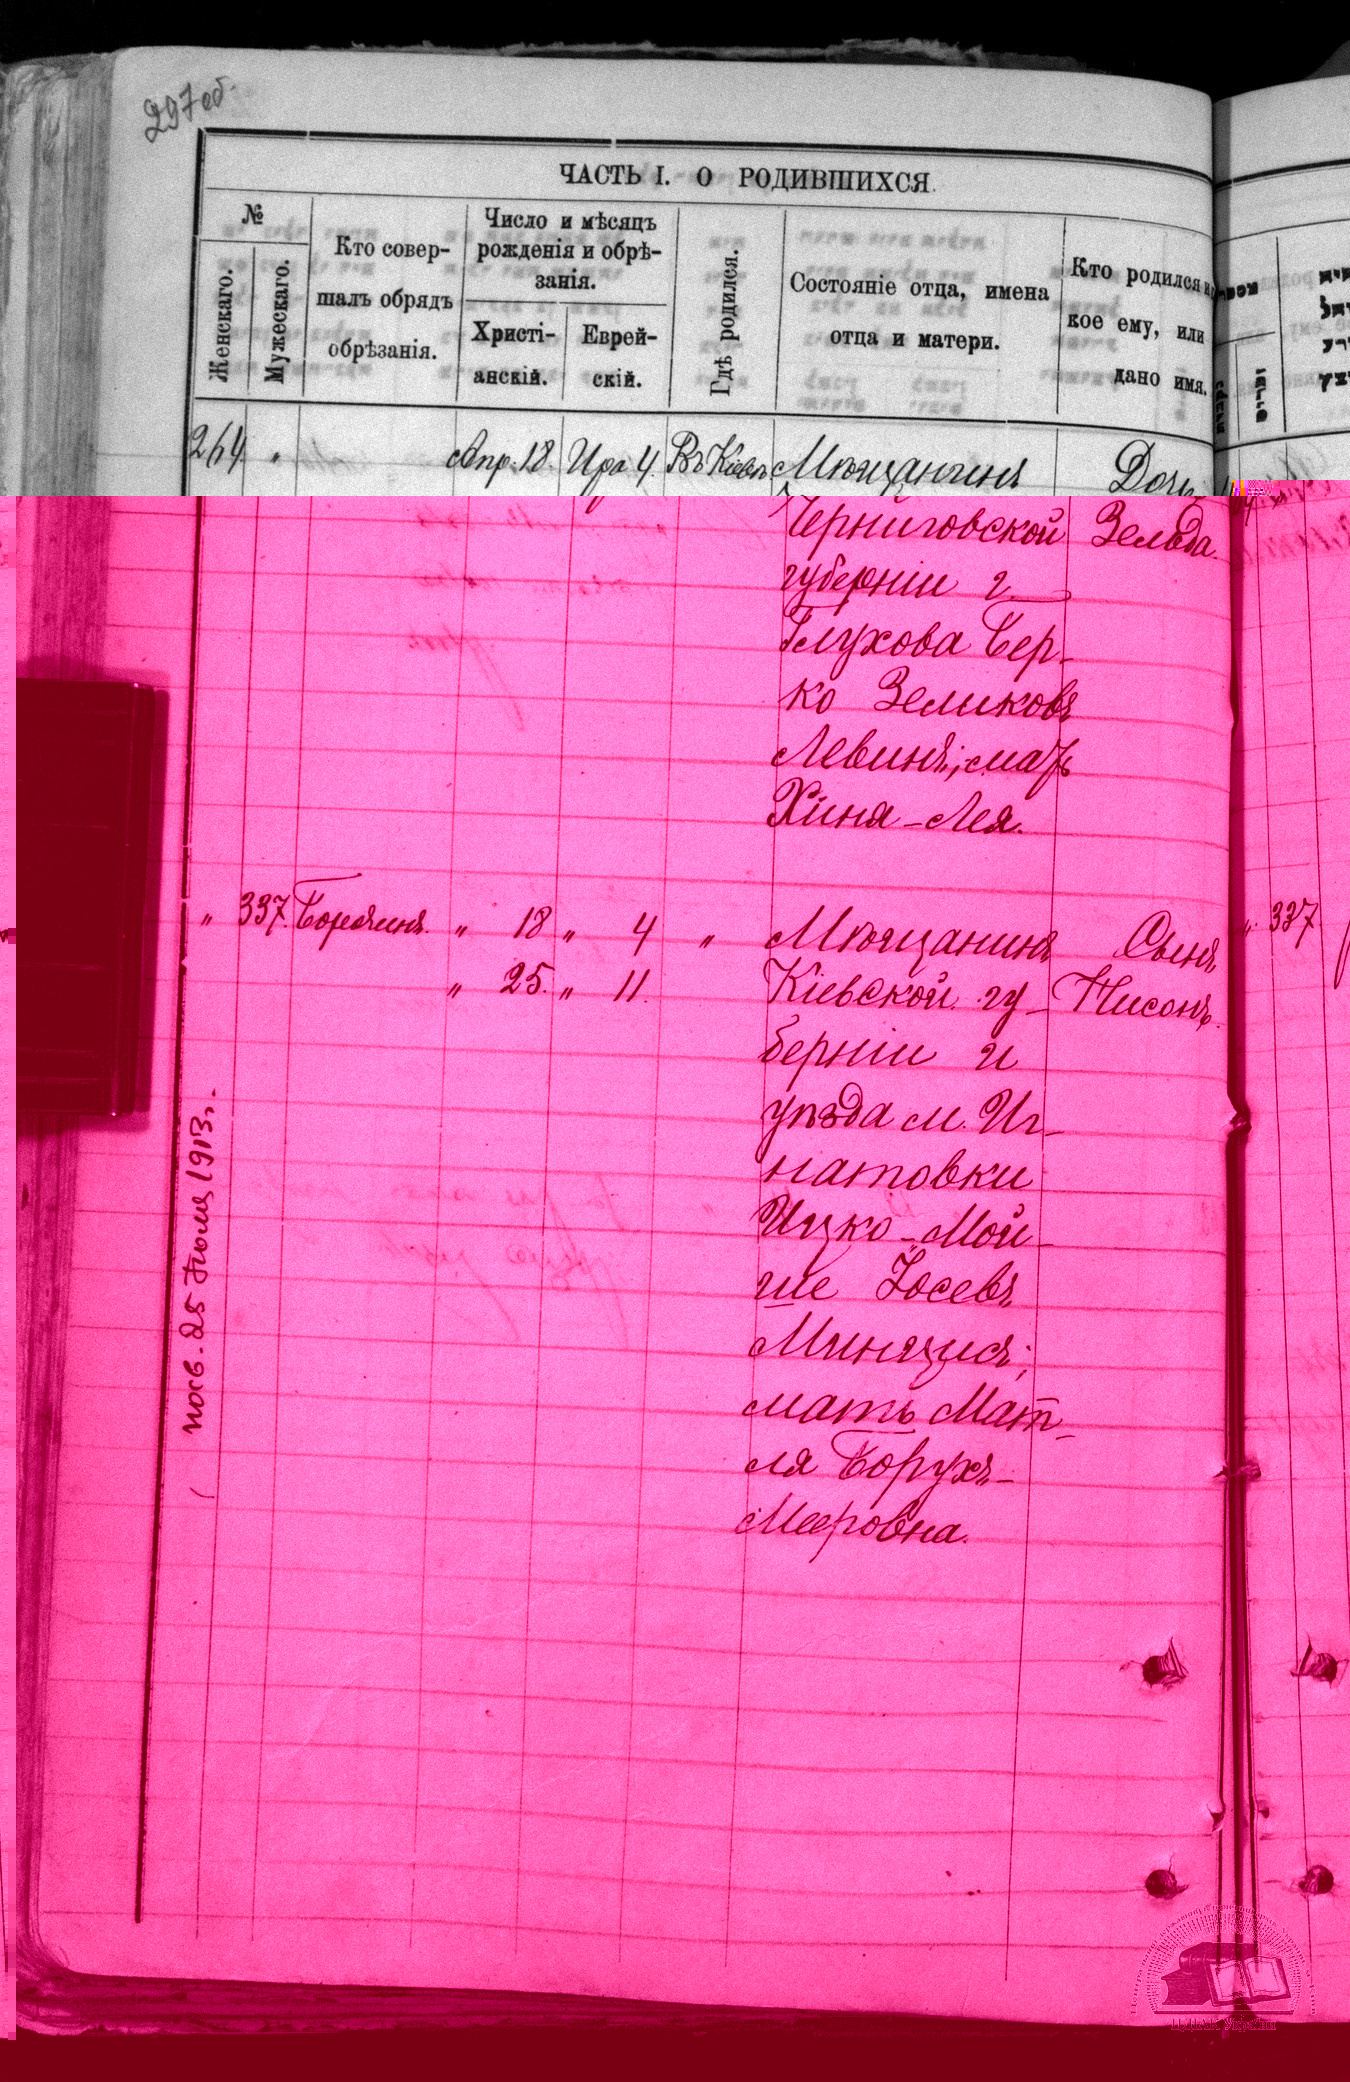 297 об.
ЧАСТЬ I. О РОДИВШИХСЯ.
№
Женскаго.
Мужескаго.
Кто совер-
шалъ обрядъ
обрѣзанія.
Число и мѣсяцъ
рожденія и обрѣ-
занія.
Христі-
анскій.
Еврей-
скій.
Гдѣ родился.
Состояніе отца, имена
отца и матери.
Кто родился и
кое ему, или
дано имя.
264 " Апр. 18. Ира 4. Въ Кіевѣ Мѣщанинъ Дочь
Черниговской Зельда.
губерніи г.
Глухова Бер-
ко Зеликовъ
Левинъ; мать
Хиня-Лея.
" 337. Борачинъ. " 18 " 4 " Мѣщанинъ Сынъ " 337.
" 25. " 11. Кіевской гу- Нисонъ.
берніи и
уѣзда м. Иг-
натовки
Ицко-Мой-
ше Іосевъ
Минцисъ;
мать Мат-
ля Борухъ-
Мееровна.
посв. 25 Іюля 1913 г.
ЦДІАК України